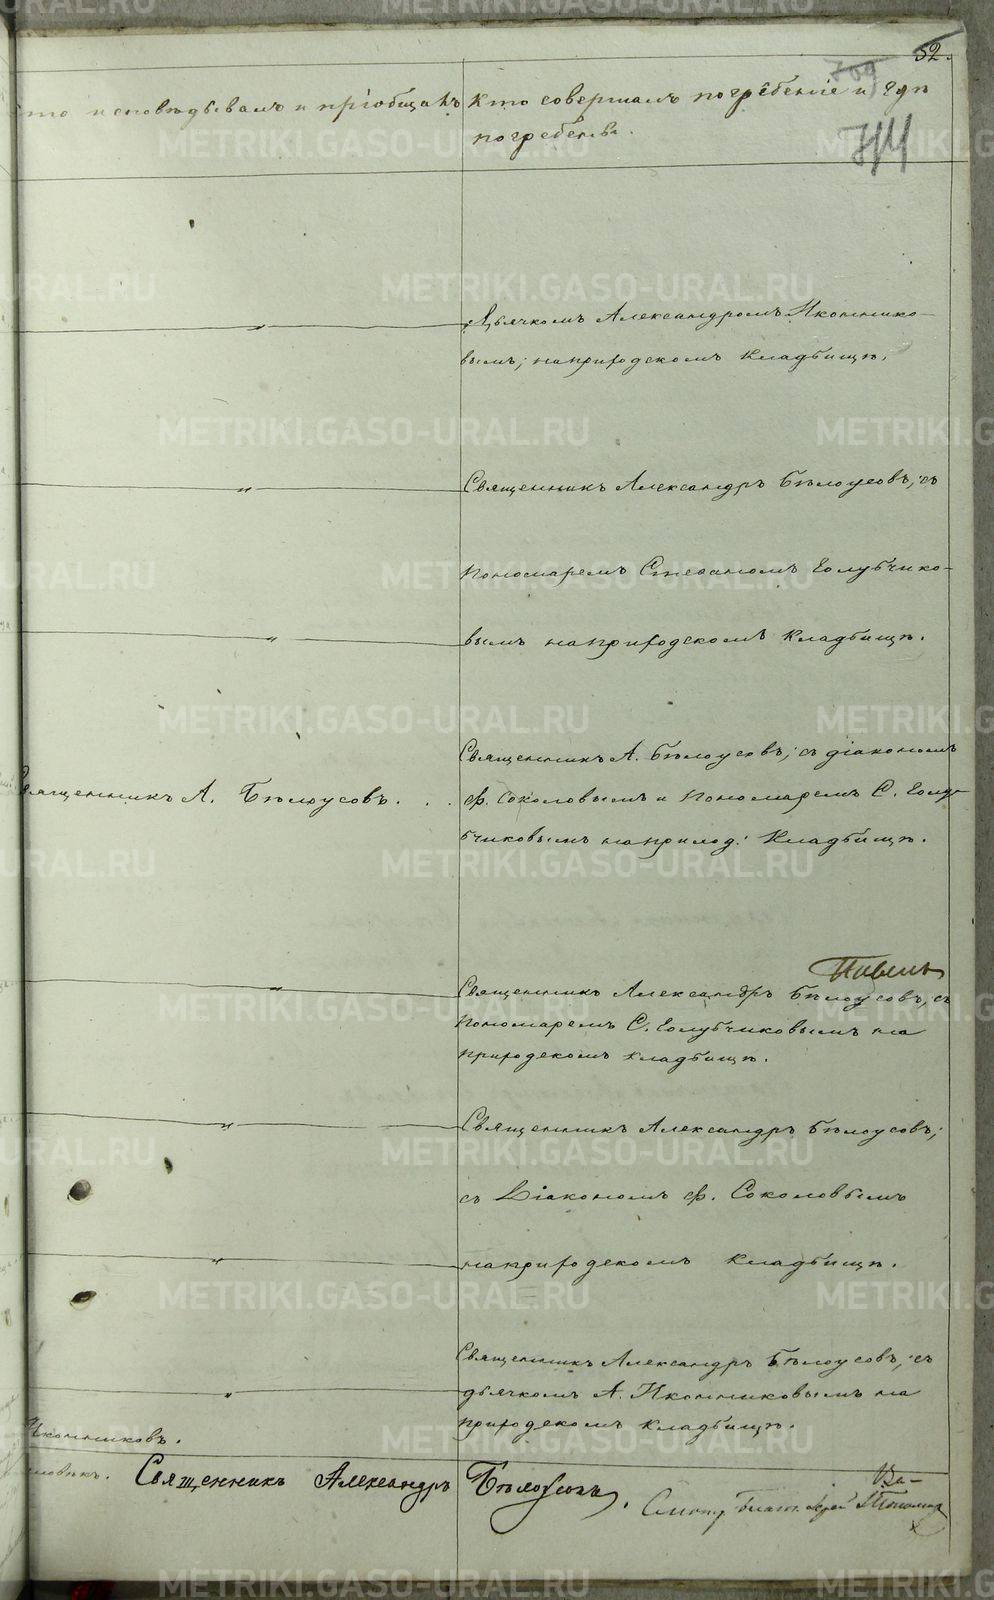 52.
709
714
то исповѣдывалъ и пріобщалъ
Кто совершалъ погребеніе и гдѣ
погребены.
Дьячкомъ Александромъ Иконнико-
вымъ; на приходскомъ кладбищѣ.
Священникъ Александръ Бѣлоусовъ; съ
пономаремъ Стефаномъ Голубчико-
вымъ на приходскомъ кладбищѣ.
Священникъ А. Бѣлоусовъ...
Священникъ А. Бѣлоусовъ; съ діакономъ
Ф. Соколовымъ и пономаремъ С. Голу-
бчиковымъ на приход: кладбищѣ.
Священникъ Александръ Бѣлоусовъ, съ
пономаремъ С. Голубчиковымъ на
приходскомъ кладбищѣ.
Священникъ Александръ Бѣлоусовъ;
съ Діакономъ Ф. Соколовымъ
на приходскомъ кладбищѣ.
Священникъ Александръ Бѣлоусовъ; съ
дьячкомъ А. Иконниковымъ на
приходскомъ кладбищѣ.
Иконниковъ.
Священникъ Александръ Бѣлоусовъ.
METRIKI.GASO-URAL.RU